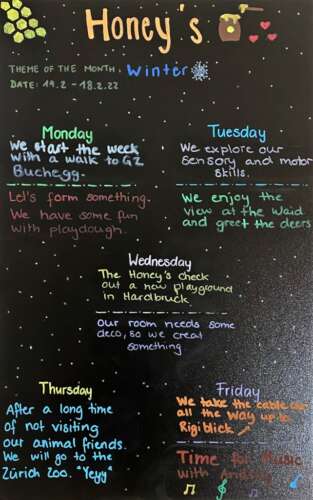 Honey's
THEME OF THE MONTH: Winter
DATE: 14.2 - 18.2.22
Monday
We start the week
with a walk to GZ
Buchegg.
Let's form something.
We have some fun
with playdough.
Tuesday
We explore our
Sensory and motor
Skills.
We enjoy the
view at the Waid
and greet the deers
Wednesday
The Honey's check
out a new playground
in Hardbruck
Our room needs some
deco, so we creat
something
Thursday
After a long time
of not visiting
our animal friends.
We will go to the
Zürich Zoo. "Yeyy"
Friday
We take the cable car
all the way up to
Rigiblick
Time for Music
with